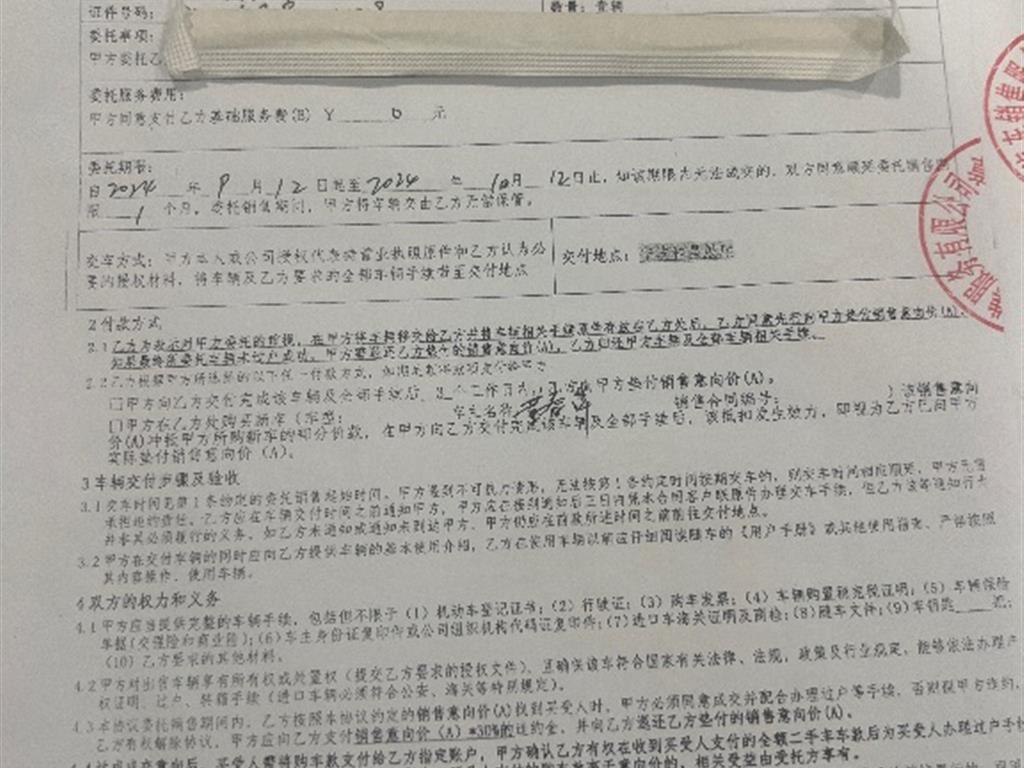 证件号码:
数量:壹辆
委托事项:
甲方委托乙
委托服务费用:
甲方同意支付乙方基础服务费(B) ¥ 0 元
委托期限:
自2024年9月12日起至2024年10月12日止,如该期限内无法成交的,双方同意顺延委托销售期
限 1 个月。委托销售期间,甲方将车辆交由乙方无偿保管。
交车方式:甲方本人或公司授权代表携营业执照原件和乙方认为必
要的授权材料,将车辆及乙方要求的全部车辆手续带至交付地点
交付地点:
服务有限公司
2 付款方式
2.1 乙方为表示对甲方委托的重视,在甲方将车辆移交给乙方并将车辆相关手续原件存放在乙方处后,乙方同意先行向甲方垫付销售意向价(A),
如果最终该委托车辆未过户成功,甲方要退还乙方垫付的销售意向价(A),乙方归还甲方车辆及全部车辆相关手续。
2.2 乙方根据甲方所选择的以下任一付款方式,如期足额将款项支付给甲方
□甲方向乙方交付完成该车辆及全部手续后,3个工作日内,乙方向甲方垫付销售意向价(A)。
□甲方在乙方处购买新车(车型: 车主名称: 销售合同编号: )该销售意向
价(A)冲抵甲方所购新车的部分价款,在甲方向乙方交付完成该车辆及全部手续后,该抵扣发生效力,即视为乙方已向甲方
实际垫付销售意向价(A)。
3 车辆交付步骤及验收
3.1 交车时间见第1条约定的委托销售起始时间。甲方遇到不可抗力情形,无法按第1条约定时间按期交车的,则交车时间相应顺延,甲方无需
承担延约责任。乙方应在车辆交付时间之前通知甲方,甲方应在接到通知后三日内凭本合同客户联原件办理交车手续,但乙方该等通知行为
并非其必须履行的义务。如乙方未通知或通知未到达甲方,甲方仍应在前款所述时间之前前往交付地点。
3.2 甲方在交付车辆的同时应向乙方提供车辆的基本使用介绍,乙方在使用车辆以前应仔细阅读随车的《用户手册》或其他使用指南,严格按照
其内容操作、使用车辆。
4 双方的权力和义务
4.1 甲方应当提供完整的车辆手续,包括但不限于(1)机动车登记证书;(2)行驶证;(3)购车发票;(4)车辆购置税完税证明;(5)车辆保险
单据(交强险和商业险);(6)车主身份证复印件或公司组织机构代码证复印件;(7)进口车海关证明及商检;(8)随车文件;(9)车钥匙 把;
(10)乙方要求的其他材料。
4.2 甲方对出售车辆享有所有权或处置权(提交乙方要求的授权文件)。且确实该车符合国家有关法律、法规,政策及行业规定,能够依法办理产
权证明、过户、转籍手续(进口车辆必须符合公安、海关等特殊规定)。
4.3 本协议委托销售期间内,乙方按照本协议约定的销售意向价(A)找到买受人时,甲方必须同意成交并配合办理过户等手续,否则视甲方违约,
乙方有权解除协议,甲方应向乙方支付销售意向价(A)*30%的违约金,并向乙方退还乙方垫付的销售意向价(A)。
4.4 达成成交意向后,买受人需将购车款支付给乙方指定账户,甲方确认乙方有权在收到买受人支付的全额二手车车款后为买受人办理过户手续
的购车款高于意向价的,相关受益由委托方享有。